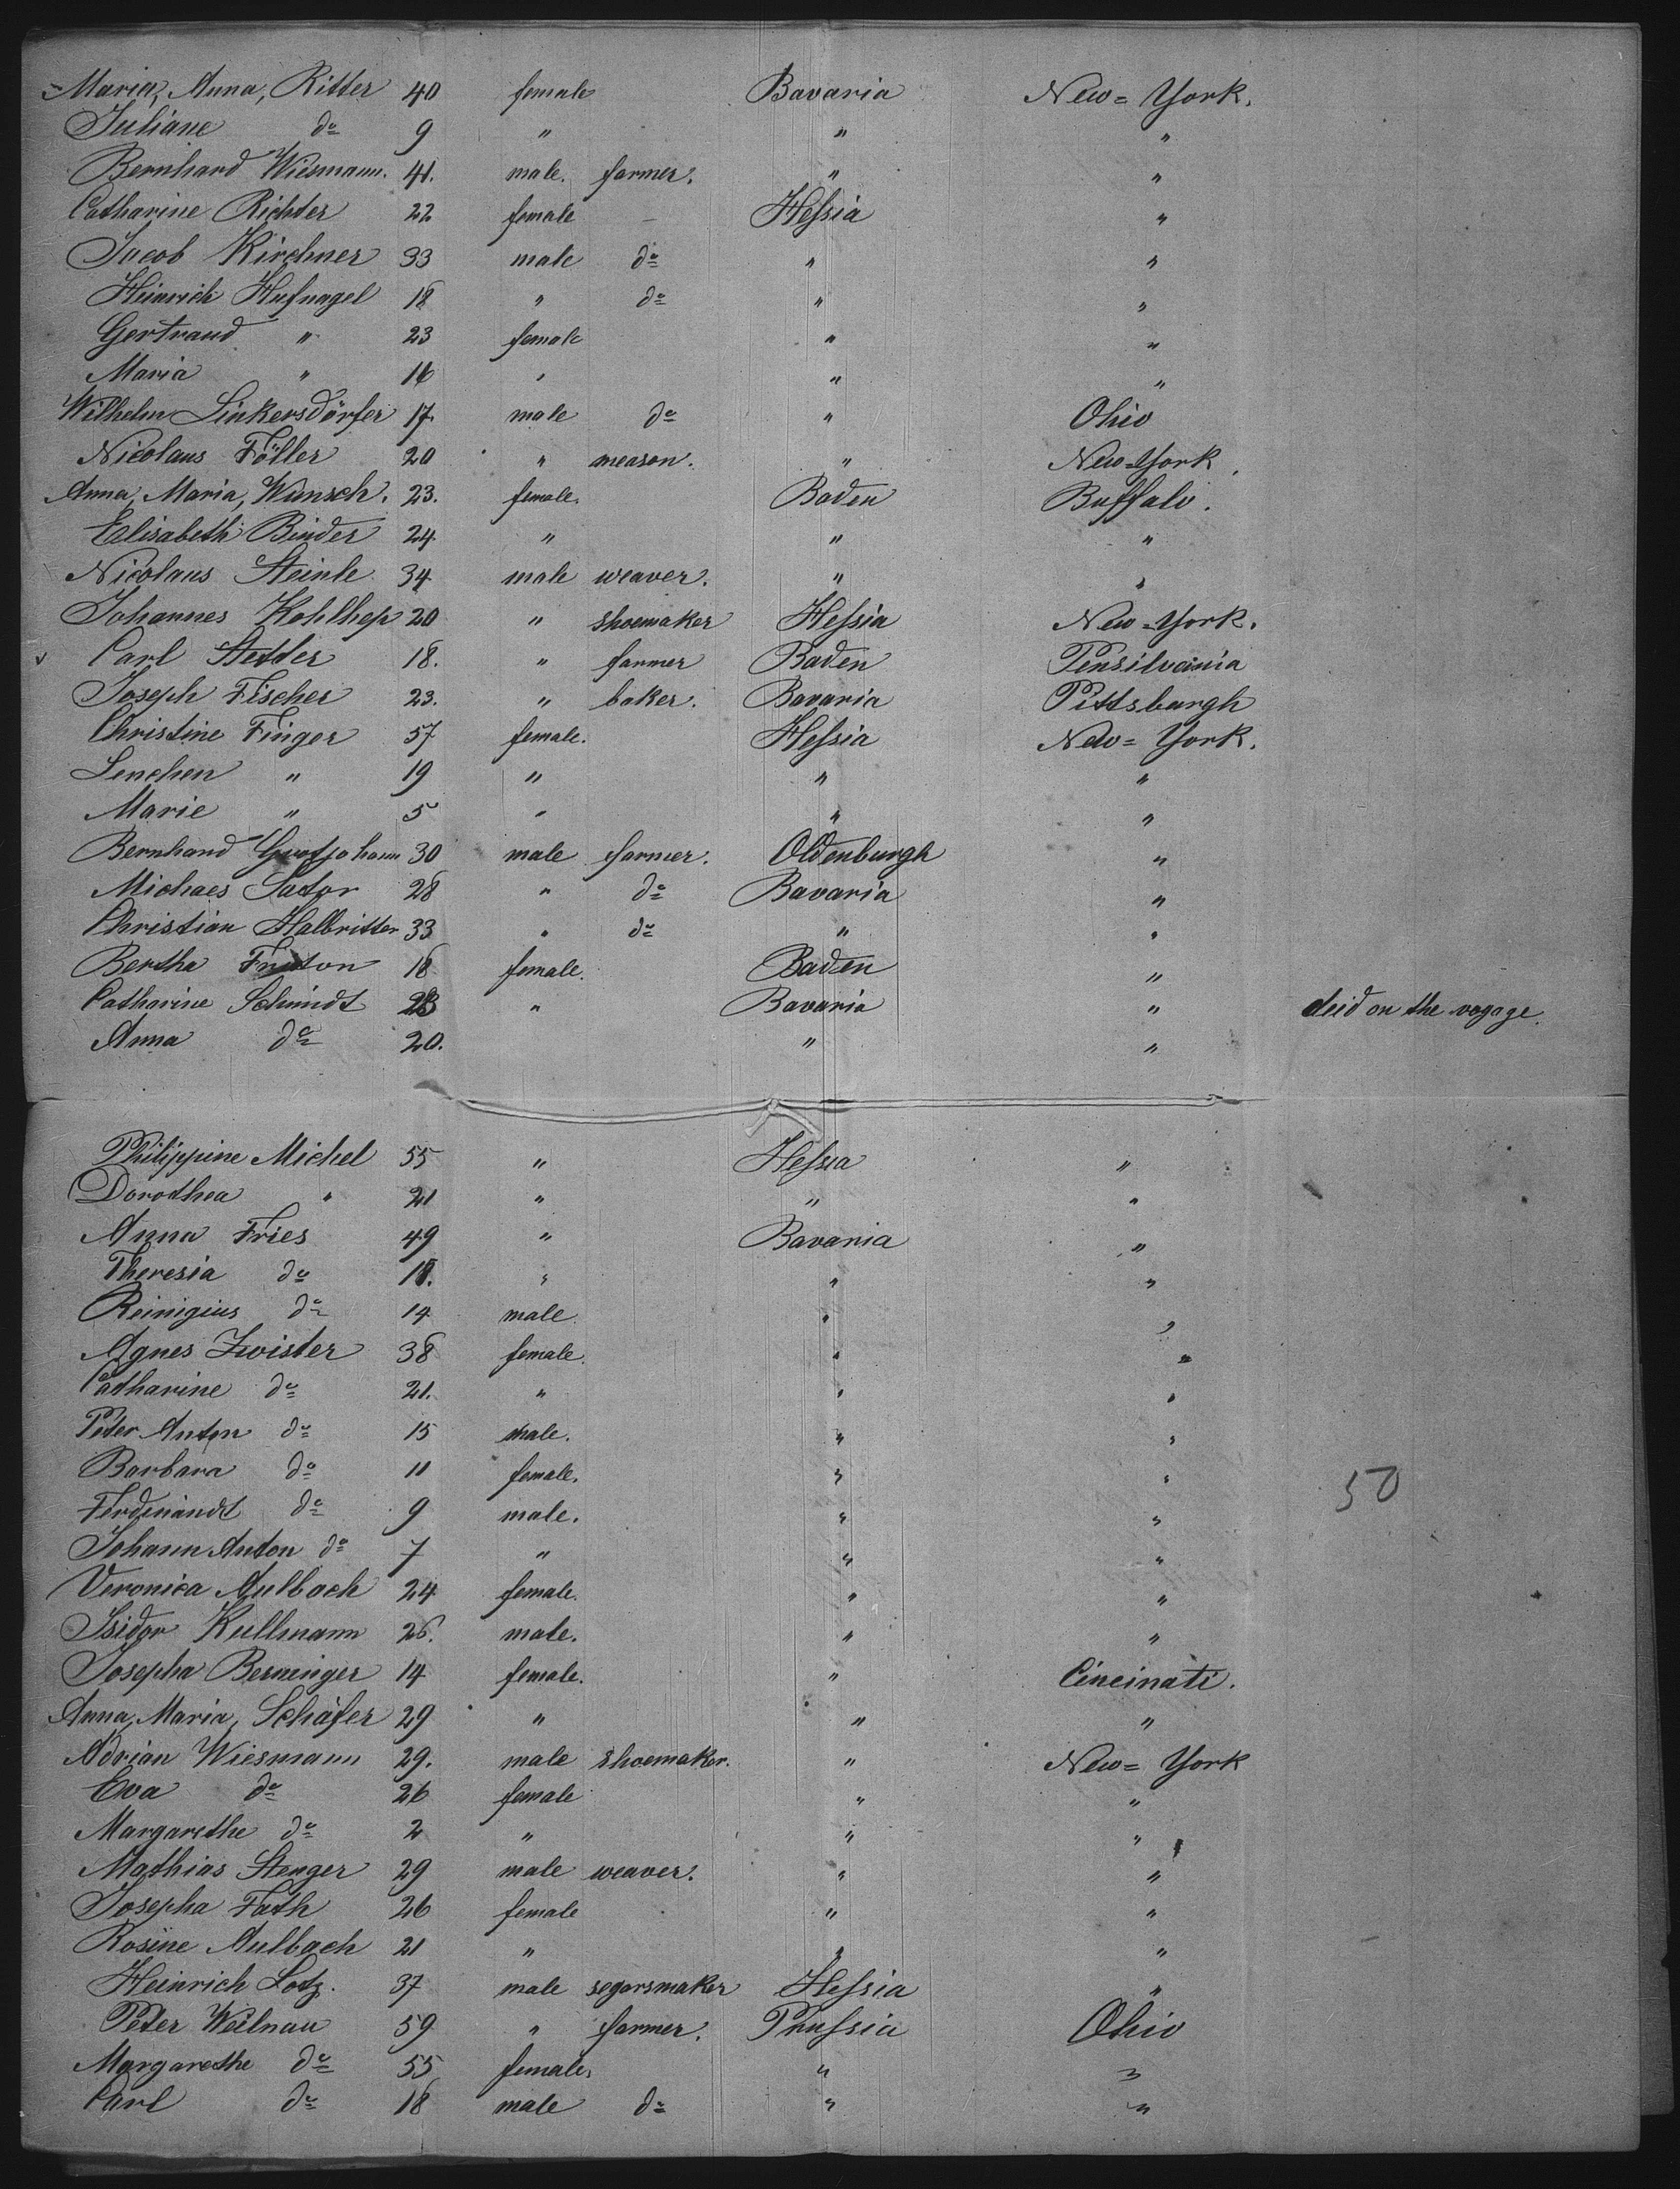 Maria, Anna, Ritter 40 female Bavaria New=York.
Juliane do 9 " " "
Bernhard Wiesmann. 41. male. farmer. " "
Catharine Richter 22 female – Heſsia "
Jacob Kirchner 33 male do " "
Heinrich Hufnagel 18 " do " "
Gertraud " 23 female " "
Maria " 16 " " "
Wilhelm Linkersdörfer 17 male do " Ohio
Nicolaus Föller 20 " meason. " New-York.
Anna, Maria, Wunsch. 23. female. Baden Buffalo.
Elisabeth Binder 24 " " "
Nicolaus Steinle 34 male weaver. " "
Johannes Kohlhep 20 " shoemaker Heſsia New-York.
Carl Stetter 18. " farmer Baden Pensilvainia
Joseph Fischer 23. " baker. Bavaria Pittsburgh
Christine Finger 57 female. Heſsia New=York.
Lenchen " 19 " " "
Marie " 5 " " "
Bernhard Grotjohann 30 male farmer. Oldenburgh "
Michaes Sator 28 " do Bavaria "
Christian Halbritter 33 " do " "
Bertha 18 female. Baden "
Catharine Schmidt 23 " Bavaria " deid on the vogage.
Anna do 20. " "
Philippine Michel 55 " Heſsia "
Dorothea " 21 " " "
Anna Fries 49 " Bavaria "
Theresia do 18. " " "
Reinigius do 14 male " "
Agnes Zwister 38 female. " "
Catharine do 21. " " "
Peter Anton do 15 male. " "
Barbara do 11 female. " "
Ferdinandt do 9 male. " "
50
Johann Anton do 7 " " "
Veronica Aulbach 24 female. " "
Isidor Kullmann 26. male. " "
Josepha Berninger 14 female. " Cincinati.
Anna, Maria, Schäfer 29 " " "
Adrian Wiesmann 29. male shoemaker. " New=York
Eva do 26 female " "
Margarethe do 2 " " "
Mathias Stenger 29 male weaver. " "
Josepha Fath 26 female " "
Rosine Aulbach 21 " " "
Heinrich Lotz. 37 male segarsmaker Heſsia "
Peter Weilnau 59 " farmer. Pruſsia Ohio
Margarethe do 55 female. " "
Carl do 18 male do " "